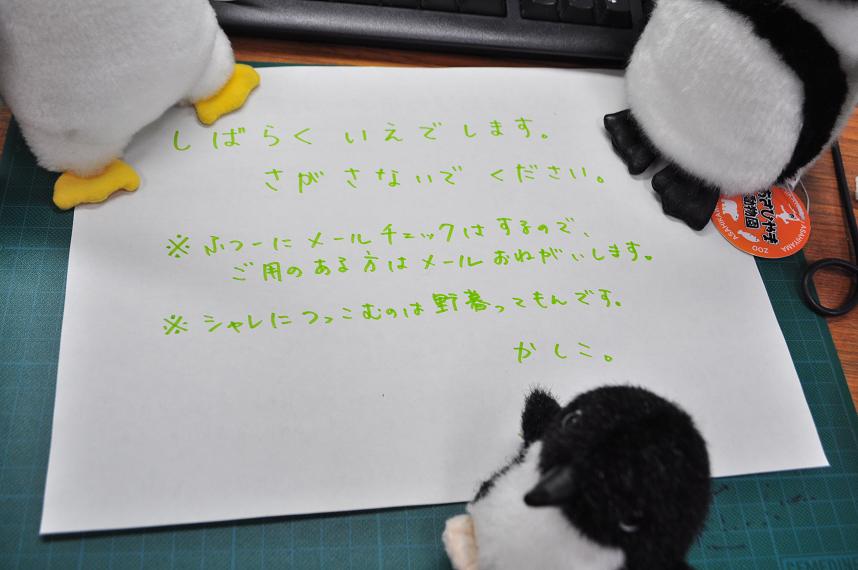 しばらく いえでします。
さがさないで ください。
※ ふつーに メールチェックは するので、
ご用のある方は メール おねがいします。
※ シャレに つっこむのは 野暮ってもんです。
かしこ。
ASAHIYAMA
ZOO